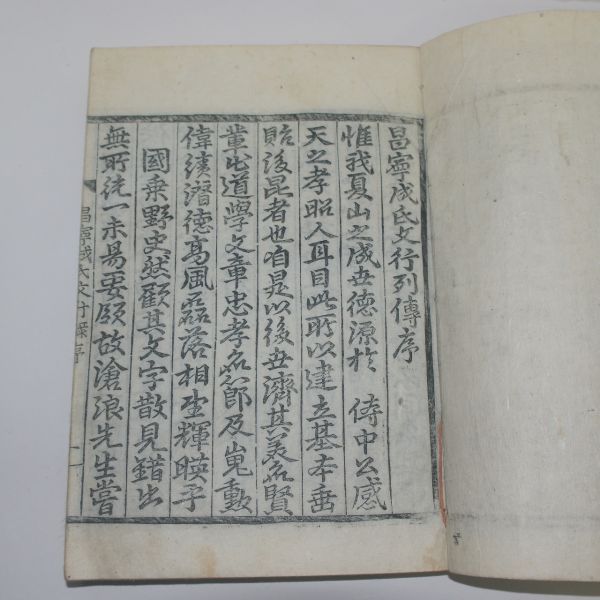 昌寧成氏文行列傳序
惟我夏山之成世德源於 倚中公感
天之孝昭人耳目此所以建立基本垂
貽後昆者也自是以後世濟其美名賢
輩出道學文章忠孝名節及嵬勳
偉績潛德高風磊落相望輝暎子
國乘野史然顧其文字散見錯出
無所統一未易要領故滄浪先生嘗
昌寧成氏文行錄序